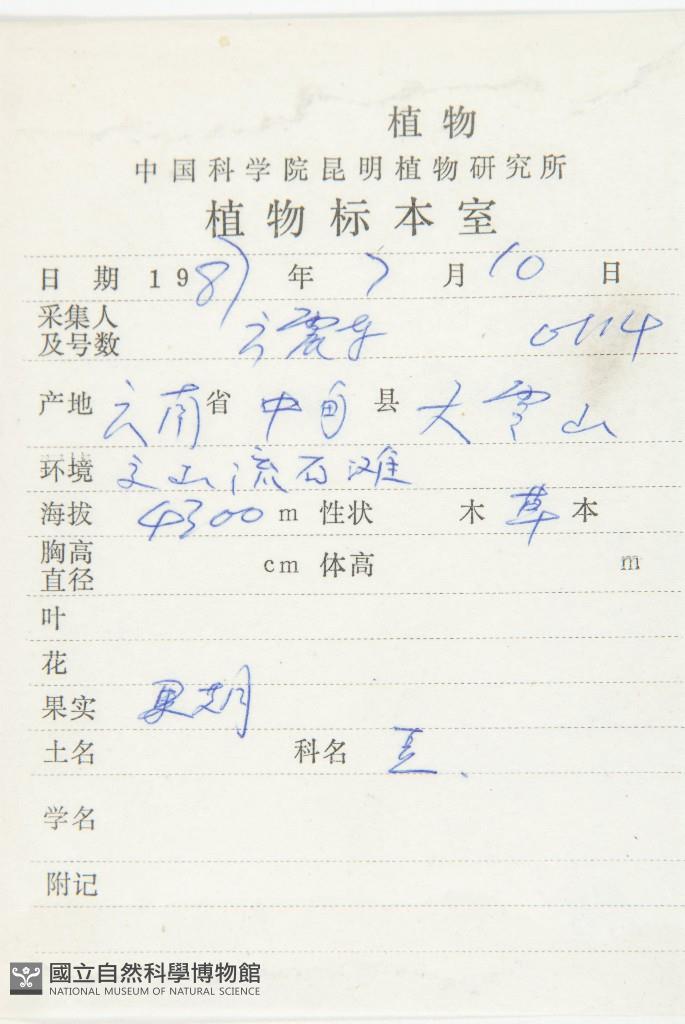 植物
中国科学院昆明植物研究所
植物标本室
日期 1987年7月10日
采集人及号数 方震东 0114
产地 云南省 中甸县 大雪山
环境 文山流石滩
海拔 4300 m 性状 木 草本
胸高直径 cm 体高 m
叶
花
果实 果期
土名 科名
学名
附记
國立自然科學博物館
NATIONAL MUSEUM OF NATURAL SCIENCE